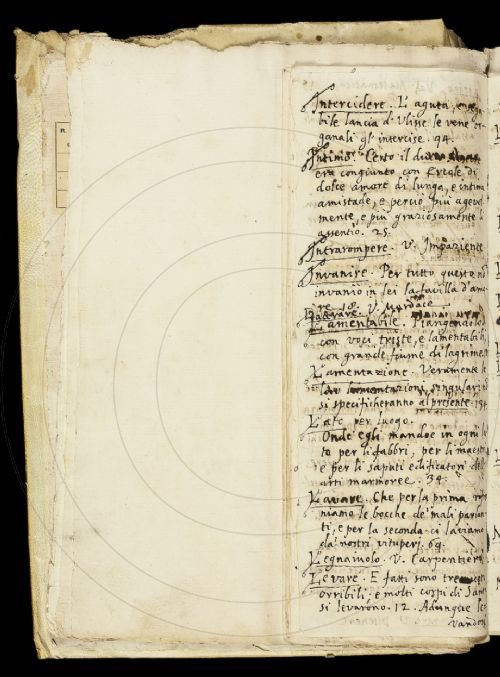 Intercidere. L'aguta,
bile lancia d'Ulisse le vene or
ganali gl'intercise. 94.
Intimo. Certo il
era congiunto con Ercole di
dolce amore di lunga, e intima
amistade, e perciò più agevol
mente, e più graziosamente li
assentiò. 25.
Intrarompere. V. Impaziente
Invanire. Per tutto questo no
invanio in lei la favilla d'amo
re. 18. V. Mordace
Lamentabile. Piangendolo
con voci triste, e lamentabili,
con grande fiume di lagrime
Lamentazione. Veramente le
loro lamentazioni singularmen
si specificheranno al presente. 194
Lato per luogo.
Onde egli mandoe in ogni la
to per li fabbri, per li maestri
e per li saputi edificatori dell'
arti marmoree. 34.
Lavare. Che per la prima
niamo le bocche de' mali parlan
ti, e per la seconda ci laviamo
da' nostri vituperj. 69.
Legnaiuolo. V. Carpentiere
Levare. E fatti sono
orribili, e molti corpi di Santi
si levarono. 12. Adunque le
vandosi